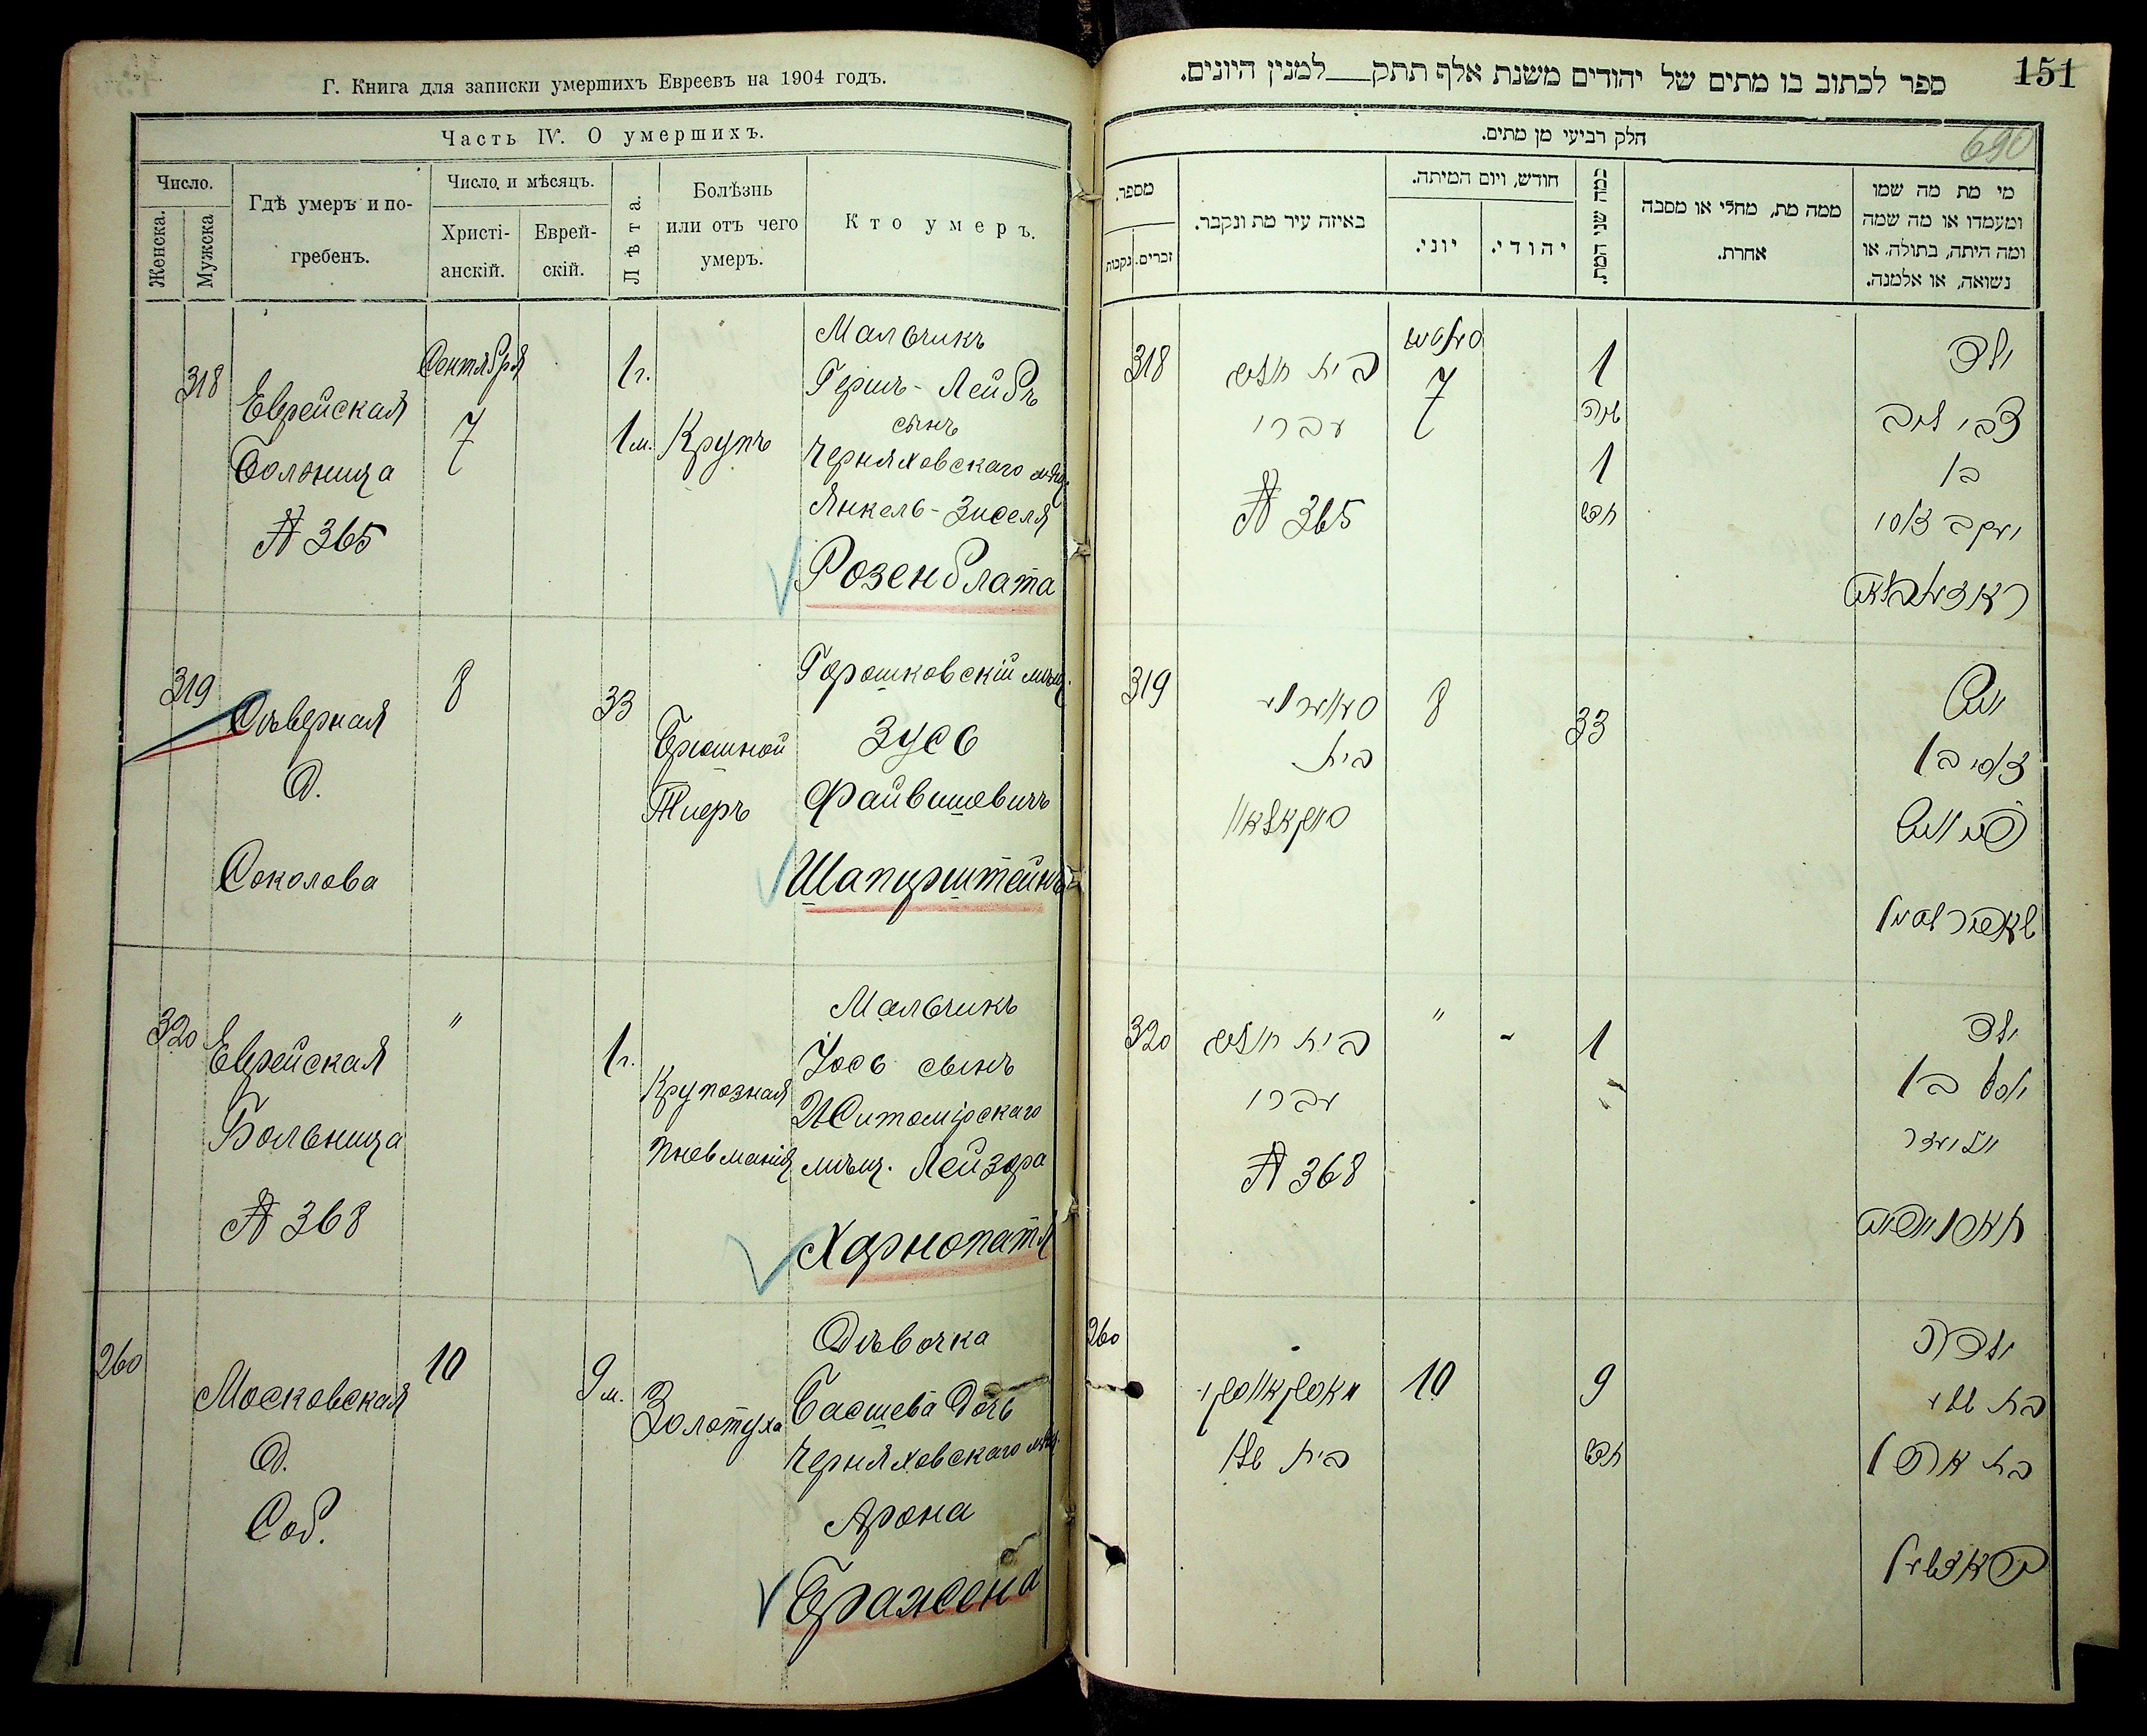 Г. Книга для записки умершихъ Евреевъ на 1904 годъ.
Часть IV. О умершихъ.
Число.
Женска.
Мужска
Гдѣ умеръ и по-
гребенъ.
Число и мѣсяцъ.
Христі-
анскій.
Еврей-
скій.
Лѣта.
Болѣзнь
или отъ чего
умеръ.
Кто умеръ.
318
Еврейская
Больница
№ 365
Сентября
7
1 г.
1 м.
Крупъ
Мальчикъ
Гершъ-Лейбъ
сынъ
Черняховскаго мѣщ.
Янкель-Зиселя
Розенблата
319
Сѣверная
д.
Соколова
8
33
Брюшной
Тиеръ
Горошковскій мѣщ.
Зусь
Файвишевичъ
Шапирштейнъ
320
Еврейская
Больница
№ 368
"
1 г.
Крупозная
пневманія
Мальчикъ
Іось сынъ
Житомірскаго
мѣщ. Лейзора
260
Московская
д.
Соб.
10
9 м.
Золотуха
Дѣвочка
Басшева дочь
Черняховскаго мѣщ.
Арона
Бражена
151
ספר לכתוב בו מתים של יהודים משנת אלף תתק למנין היונים.
690
חלק רביעי מן מתים.
מספר.
זכרים.
נקבות
באיזה עיר מת ונקבר.
חודש, ויום המיתה.
יוני.
יהודי.
כמה שני המת.
ממה מת, מחלי או מסבה
אחרת.
מי מת מה שמו
ומעמדו או מה שמה
ומה היתה, בתולה, או
נשואה, או אלמנה.
318
בית חולים
עברי
№ 365
7
1
שנה
1
חדש
ילד
צבי ליב
בן
יעקב זוסי
ראזענבלאט
319
בית
8
33
זוסי בן
320
בית חולים
עברי
№ 368
"
1
ילד
יוסף בן
260
בית
10
9
חדש
ילדה
בת שבע
בת אהרן